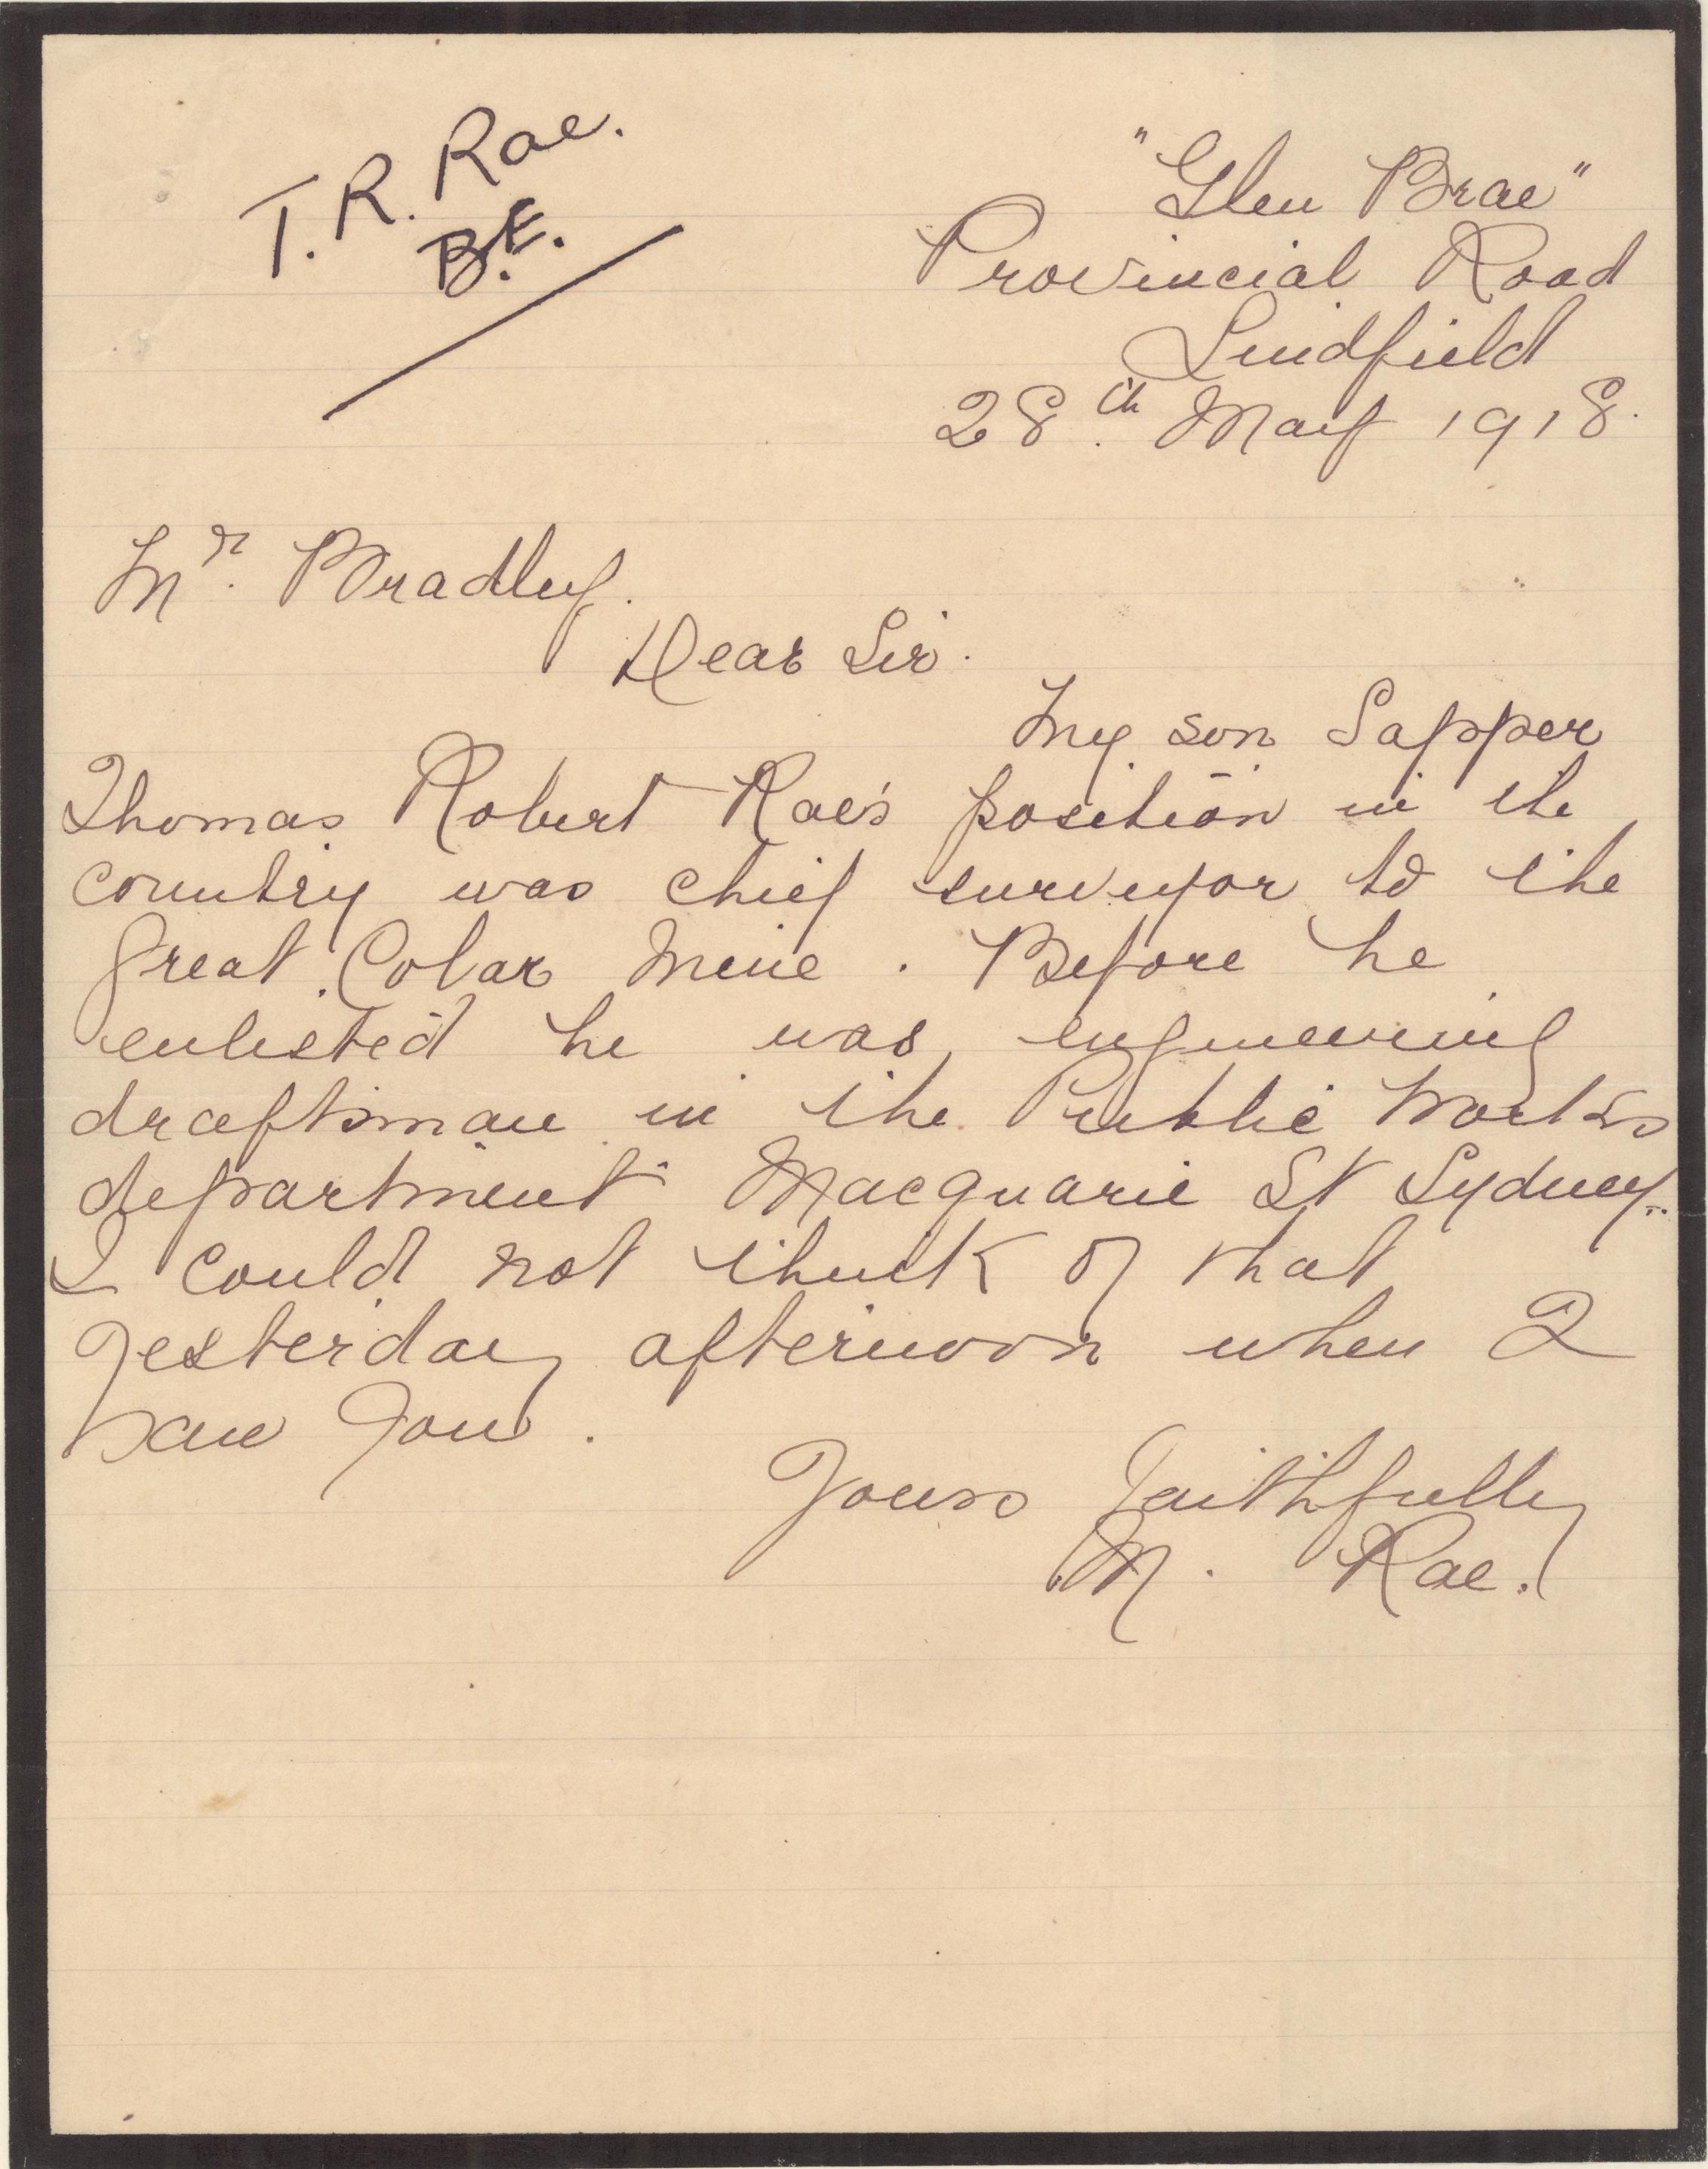 T. R. Rae.
B.E.
"Glen Brae"
Provincial Road
Lindfield
28th May 1918.
Mr. Bradley.
Dear Sir.
My son Sapper
Thomas Robert Rae's position in the
country was chief surveyor to the
Great Cobar Mine. Before he
enlisted he was engineering
draftsman in the Public Works
department Macquarie St Sydney.
I could not think of that
yesterday afternoon when I
saw you.
Yours faithfully
M. Rae.